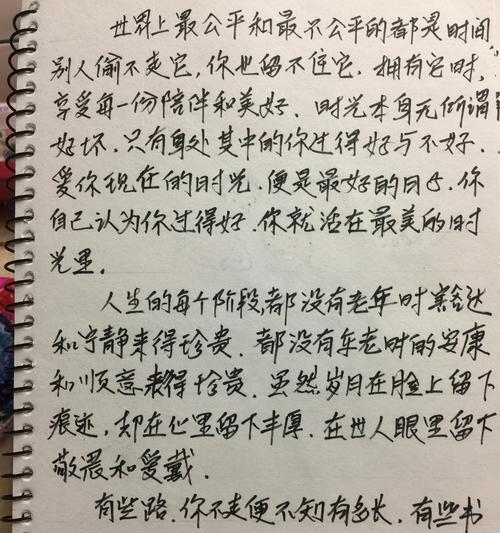 世界上最公平和最不公平的都是时间,
别人偷不走它,你也留不住它.拥有它时,
享受每一份陪伴和美好.时光本身无所谓
好坏.只有身处其中的你过得好与不好.
爱你现在的时光.便是最好的日子.你
自己认为你过得好.你就活在最美的时
光里.
人生的每个阶段,都没有老年时豁达
和宁静来得珍贵.都没有年老时的安康
和顺意来得珍贵.虽然岁月在脸上留下
痕迹,却在心里留下丰厚.在世人眼里留下
敬畏和爱戴.
有些路.你不走便不知有多长.有些书